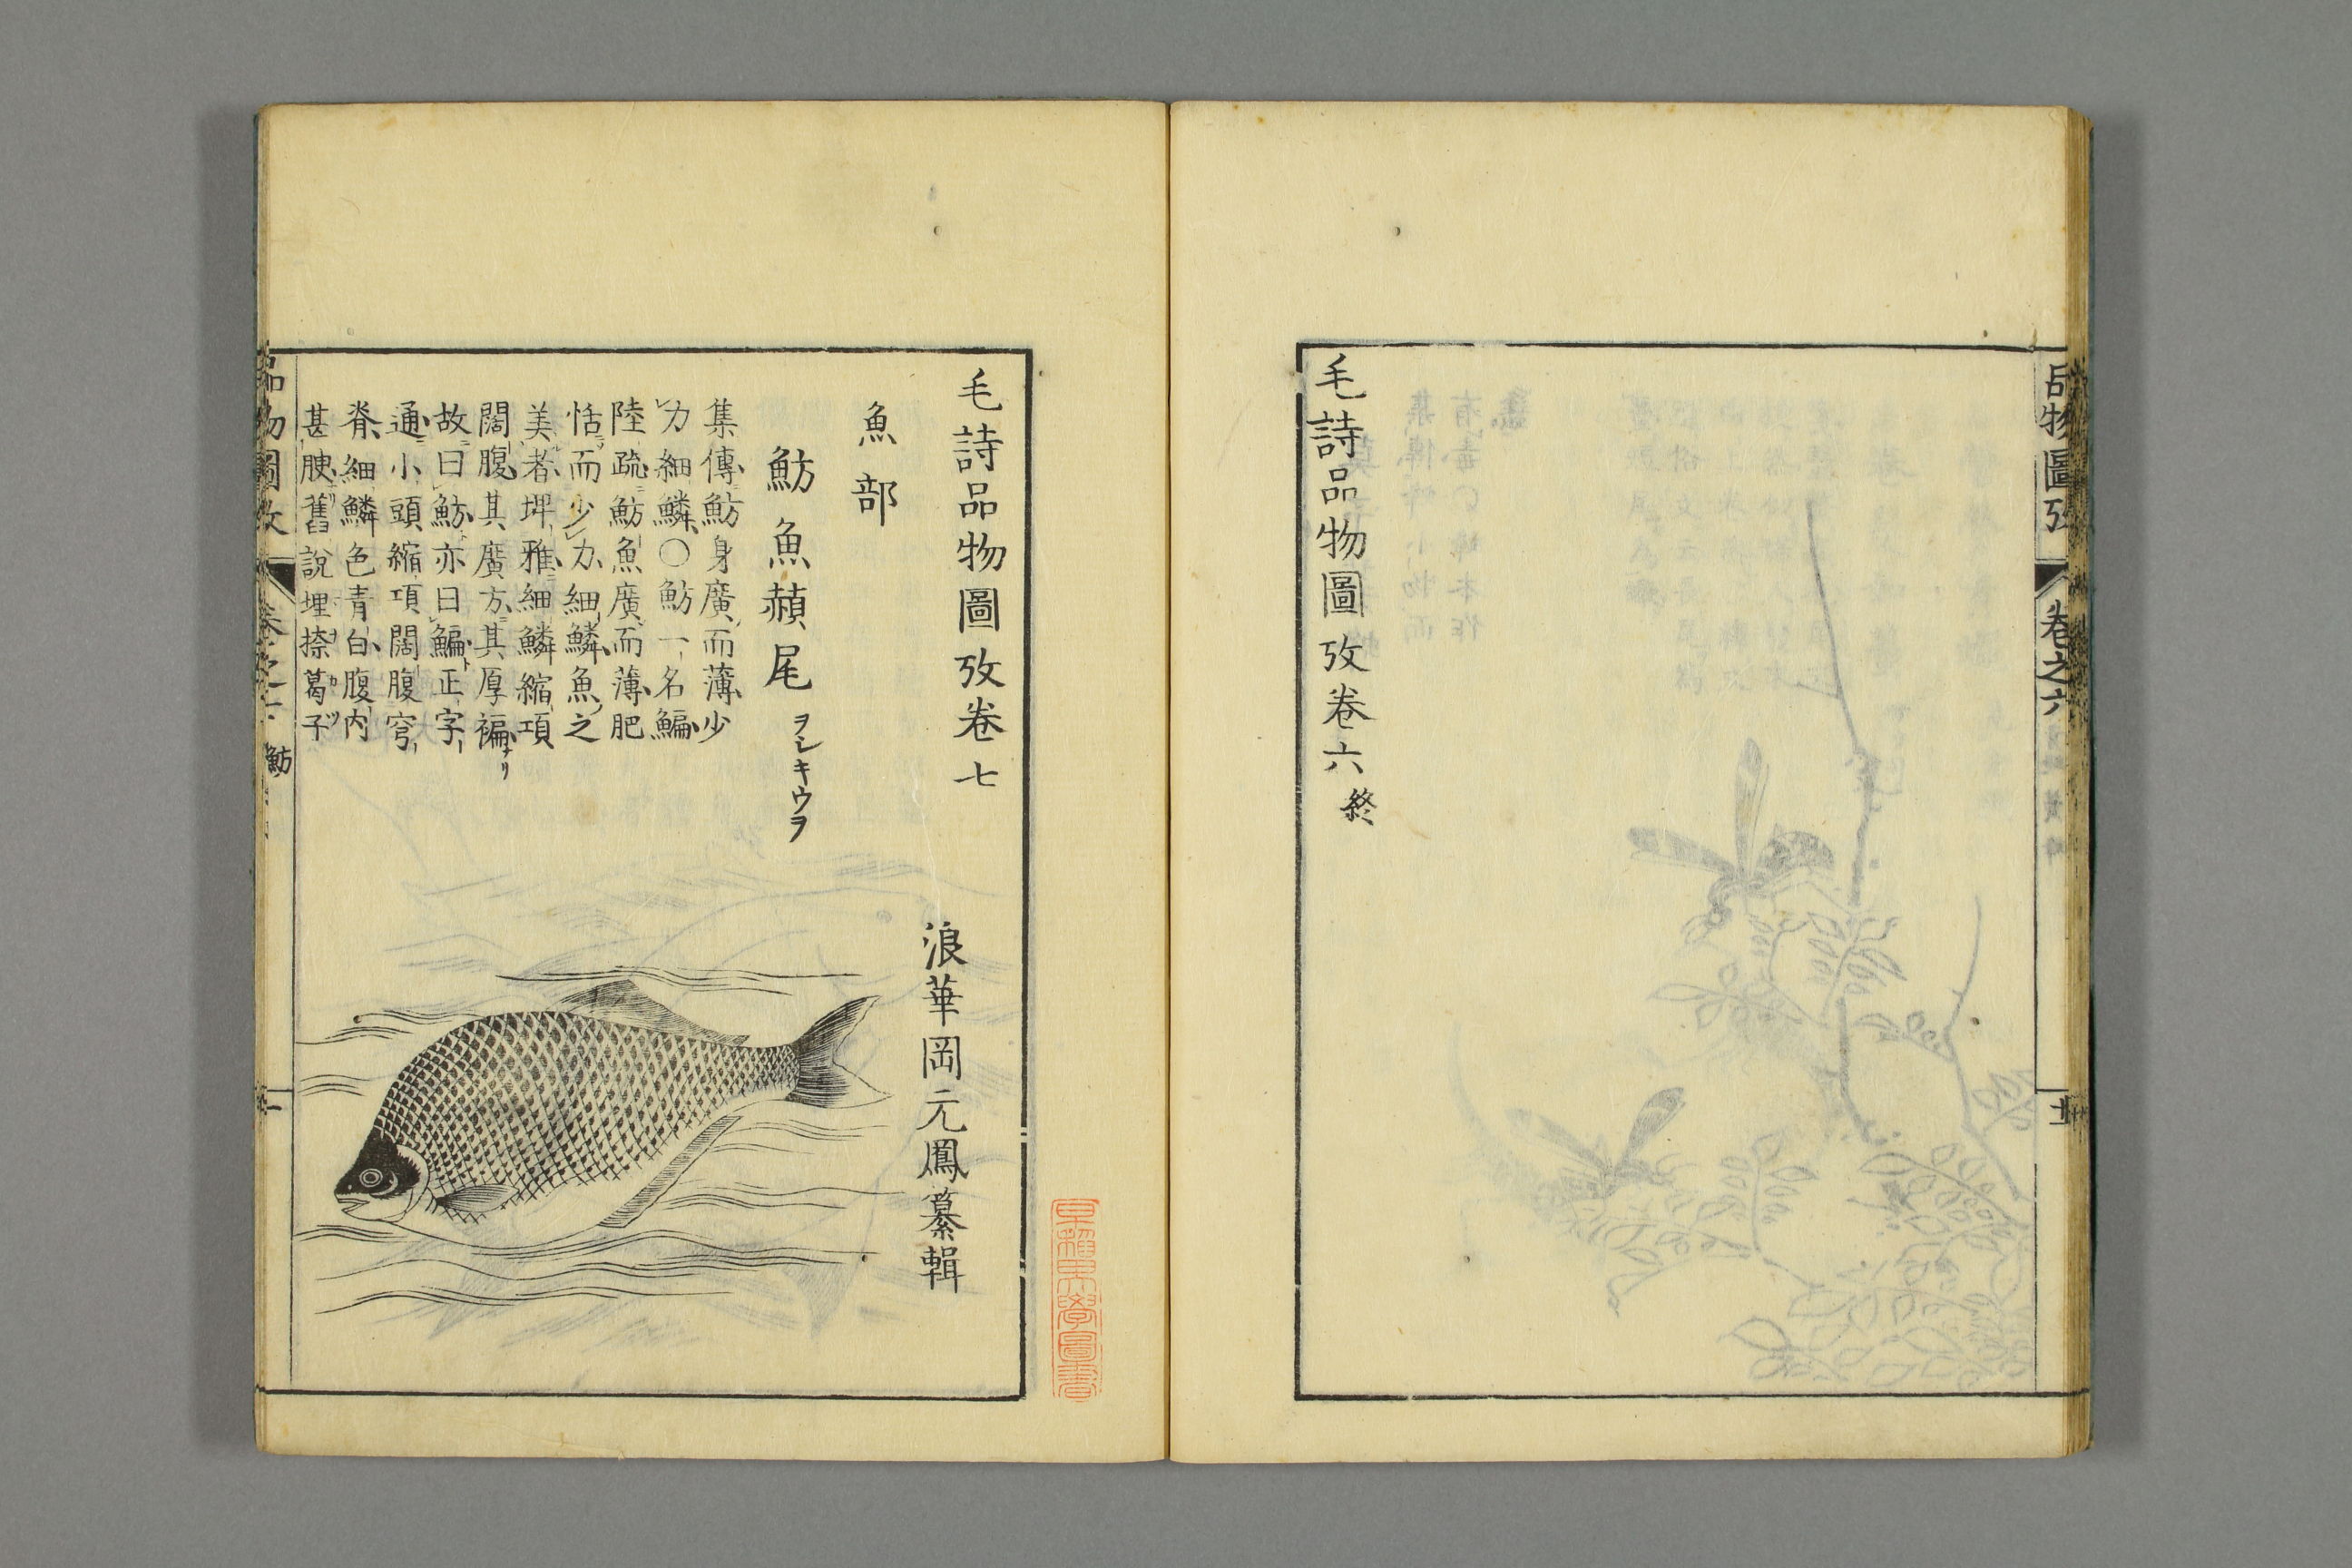 品物圖攷　卷之六
毛詩品物圖攷卷六終
毛詩品物圖攷卷七
浪華岡元鳳纂輯
魚部
魴魚赬尾　ヲシキウヲ
集傳魴身廣而薄少
力細鱗○魴一名鯿
陸疏魴魚廣而薄肥
恬而少力細鱗魚之
美者埤雅細鱗縮項
闊腹其廣方其厚褊
故曰魴亦曰鯿正字
通小頭縮項闊腹穹
脊細鱗色青白腹内
甚腴舊說埋捺葛子
品物圖攷　卷之七　魴　一
早稲田大學圖書